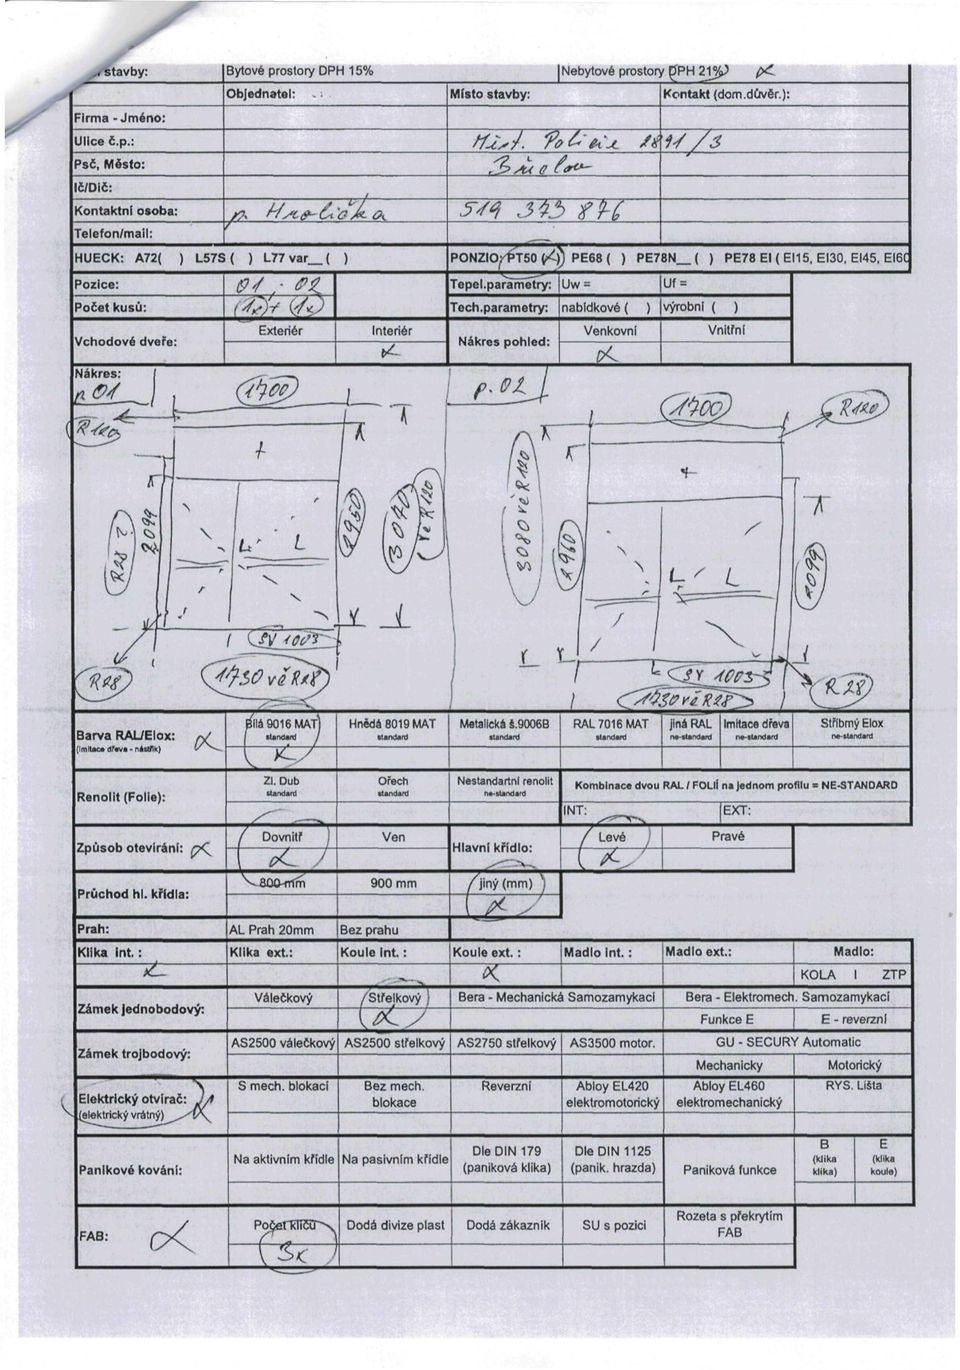 stavby: Bytové prostory DPH 15% Nebytové prostory DPH 21%
Objednatel: Místo stavby: Kontakt (dom.důvěr.):
Firma - Jméno:
Ulice č.p.: Měst. Policie 2891/3
Psč, Město: Břeclav
Ič/Dič:
Kontaktní osoba: p. Hrolička 519 373 876
Telefon/mail:
HUECK: A72( ) L57S ( ) L77 var__( ) PONZIO: PT50 (X) PE68 ( ) PE78N_ ( ) PE78 EI ( EI15, EI30, EI45, EI60
Pozice: 01 ; 02 Tepel.parametry: Uw = Uf =
Počet kusů: 1x + 1x Tech.parametry: nabídkové ( ) výrobní ( )
Vchodové dveře: Exteriér Interiér Nákres pohled: Venkovní Vnitřní
Nákres:
p. 01 1700 p. 02 1700 R120
R120
+ +
R28 ? 2099 2950 3070 vč R120 3080 vč R120 2960 2099
L L L L
SV 1003 SV 1003
R28 1730 vč R28 1730 vč R28 R28
Barva RAL/Elox: Bílá 9016 MAT Hnědá 8019 MAT Metalická š.9006B RAL 7016 MAT jiná RAL Imitace dřeva Stříbrný Elox
(imitace dřeva - nástřik) standard standard standard standard ne-standard ne-standard ne-standard
Renolit (Folie): Zl. Dub Ořech Nestandartní renolit Kombinace dvou RAL / FOLIÍ na jednom profilu = NE-STANDARD
standard standard ne-standard
INT: EXT:
Způsob otevírání: Dovnitř Ven Hlavní křídlo: Levé Pravé
Průchod hl. křídla: 800 mm 900 mm jiný (mm)
Prah: AL Prah 20mm Bez prahu
Klika int. : Klika ext.: Koule int. : Koule ext. : Madlo int. : Madlo ext.: Madlo:
KOLA I ZTP
Zámek jednobodový: Válečkový Střelkový Bera - Mechanická Samozamykací Bera - Elektromech. Samozamykací
Funkce E E - reverzní
Zámek trojbodový: AS2500 válečkový AS2500 střelkový AS2750 střelkový AS3500 motor. GU - SECURY Automatic
Mechanicky Motorický
Elektrický otvírač: S mech. blokací Bez mech. blokace Reverzní Abloy EL420 elektromotorický Abloy EL460 elektromechanický RYS. Lišta
(elektrický vrátný)
Panikové kování: Na aktivním křídle Na pasivním křídle Dle DIN 179 (paniková klika) Dle DIN 1125 (panik. hrazda) Paniková funkce B (klika klika) E (klika koule)
FAB: Počet klíčů Dodá divize plast Dodá zákazník SU s pozicí Rozeta s překrytím FAB
3x